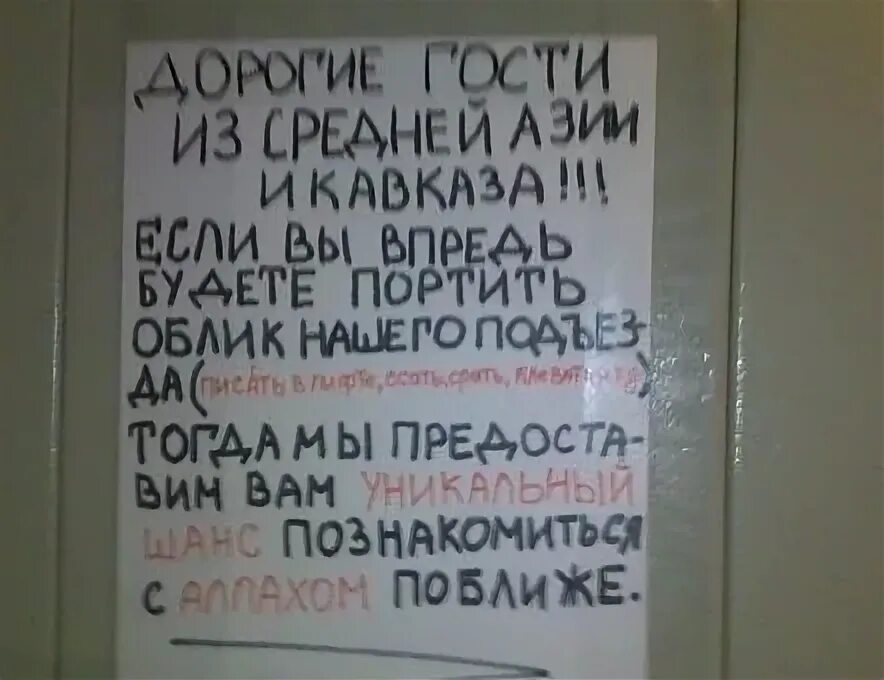 ДОРОГИЕ ГОСТИ
ИЗ СРЕДНЕЙ АЗИИ
И КАВКАЗА!!!
ЕСЛИ ВЫ ВПРЕДЬ
БУДЕТЕ ПОРТИТЬ
ОБЛИК НАШЕГО ПОДЪЕЗ-
ДА (писАть в лифте, ссать, срать,
ТОГДА МЫ ПРЕДОСТА-
ВИМ ВАМ УНИКАЛЬНЫЙ
ШАНС ПОЗНАКОМИТЬСЯ
С АЛЛАХОМ ПОБЛИЖЕ.